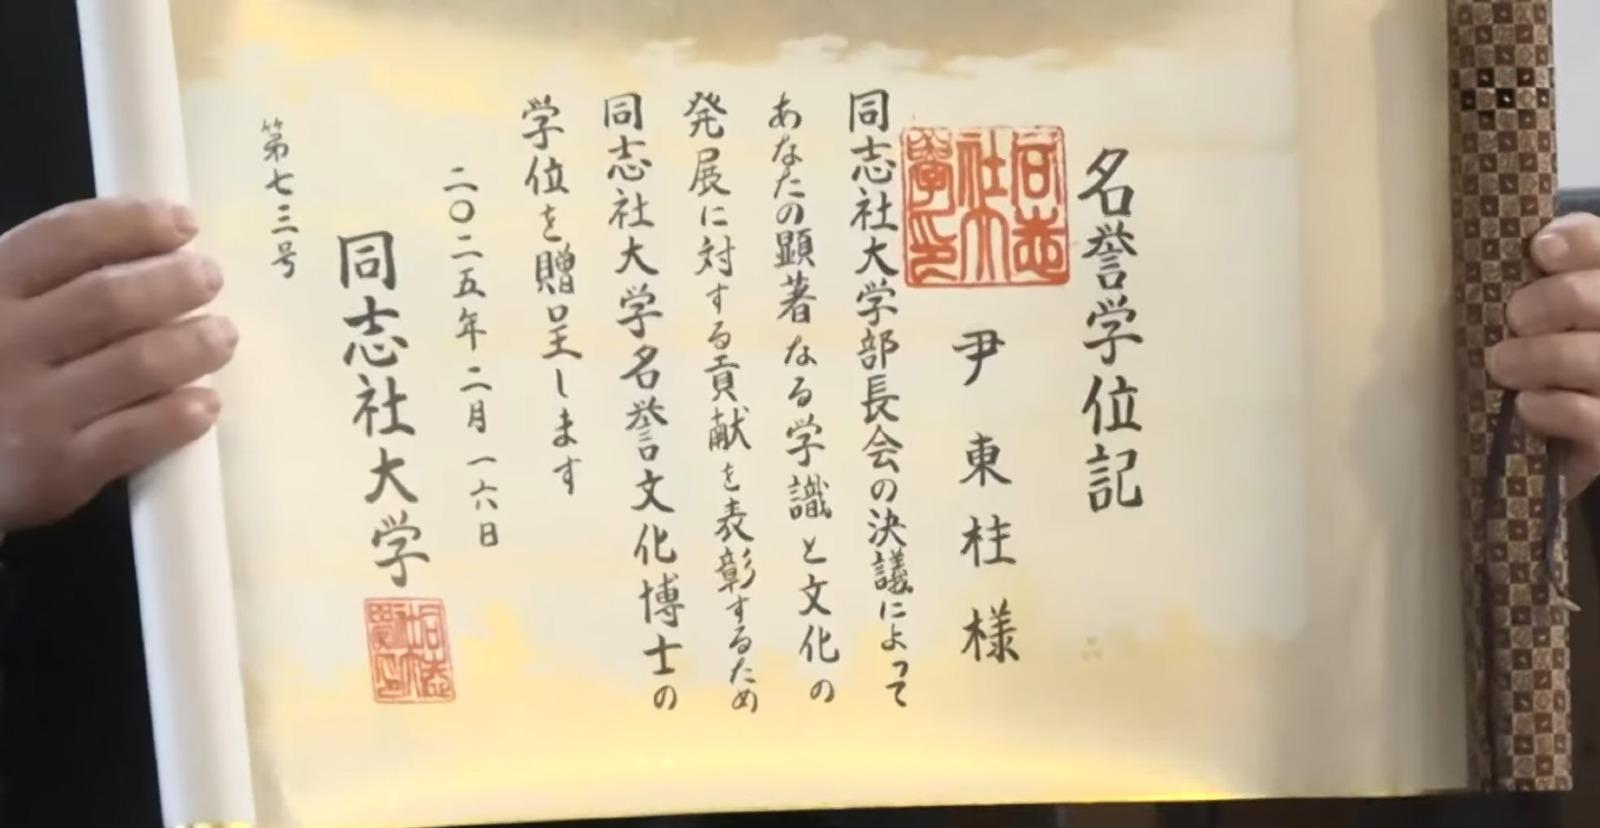 名誉学位記
同志社大学印
尹東柱様
同志社大学部長会の決議によって
あなたの顕著なる学識と文化の
発展に対する貢献を表彰するため
同志社大学名誉文化博士の
学位を贈呈します
二〇二五年二月一六日
同志社大学
第七三号